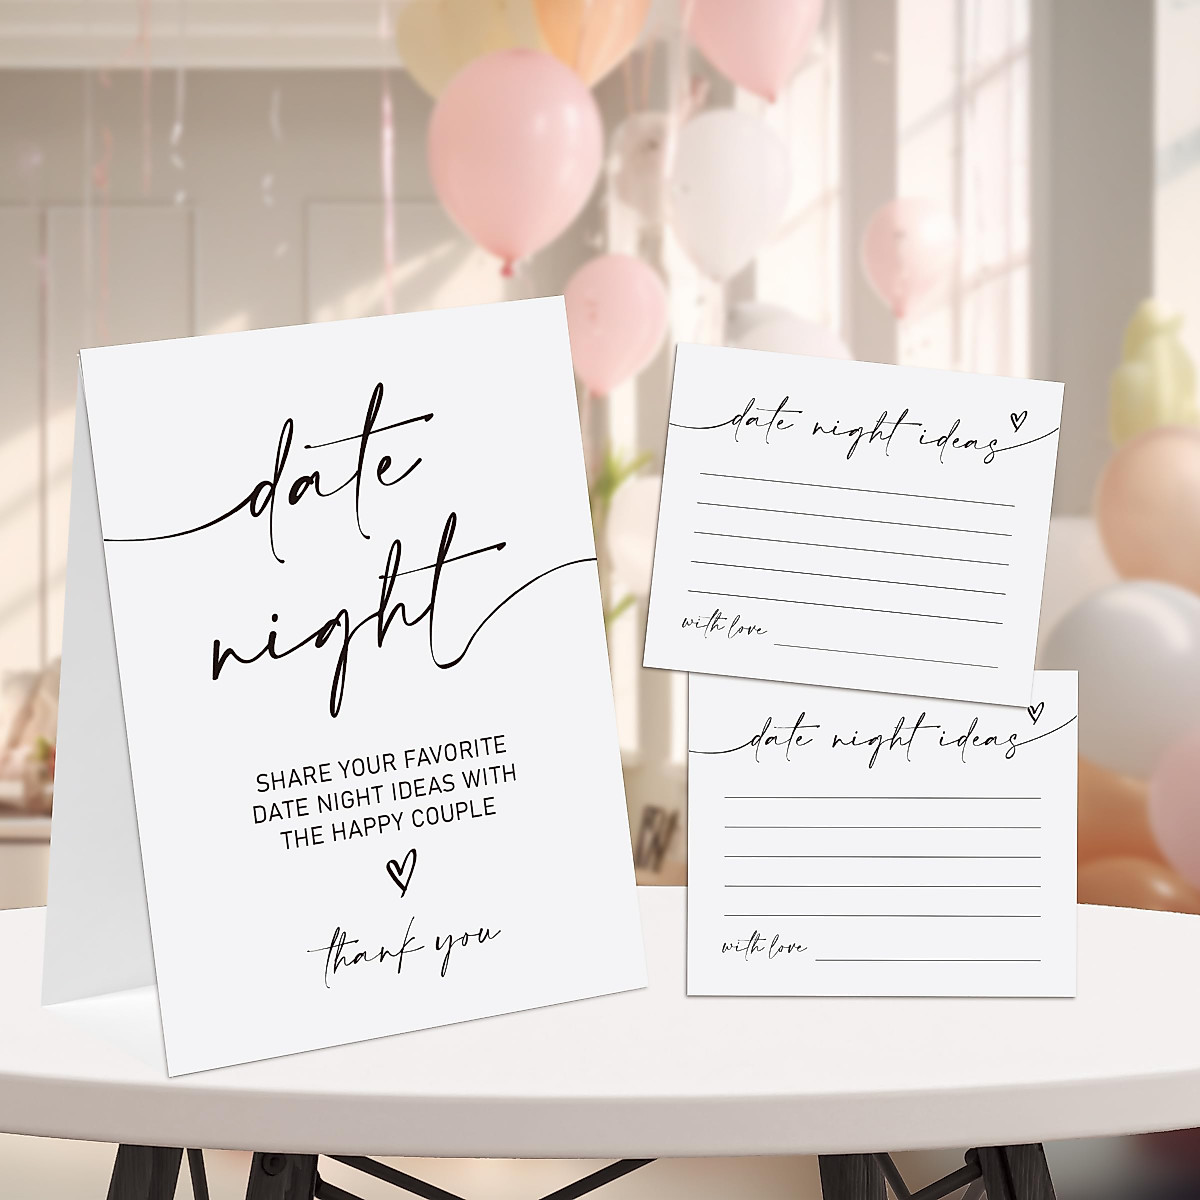 date
night
SHARE YOUR FAVORITE
DATE NIGHT IDEAS WITH
THE HAPPY COUPLE
thank you
date night ideas
with love
date night ideas
with love